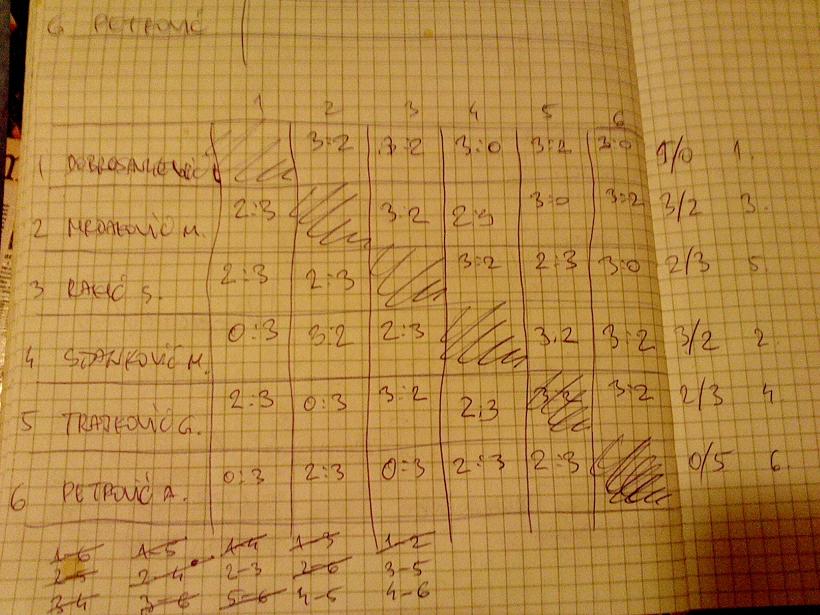 6 PETROVIĆ
1 2 3 4 5 6
1 3:2 3:2 3:0 3:2 3:0 1.
2 MEDAKOVIĆ M. 2:3 3:2 2:3 3:0 3:2 3/2 3.
3 2:3 2:3 3:2 2:3 3:0 2/3 5.
4 STANKOVIĆ M. 0:3 3:2 2:3 3:2 3:2 3/2 2.
5 TRAJKOVIĆ G. 2:3 0:3 3:2 2:3 3:2 2/3 4.
6 PETROVIĆ A. 0:3 2:3 0:3 2:3 2:3 0/5 6.
1-6 1-5 1-4 1-3 1-2
2-5 2-4 2-3 2-6 3-5
3-4 3-6 5-6 4-5 4-6